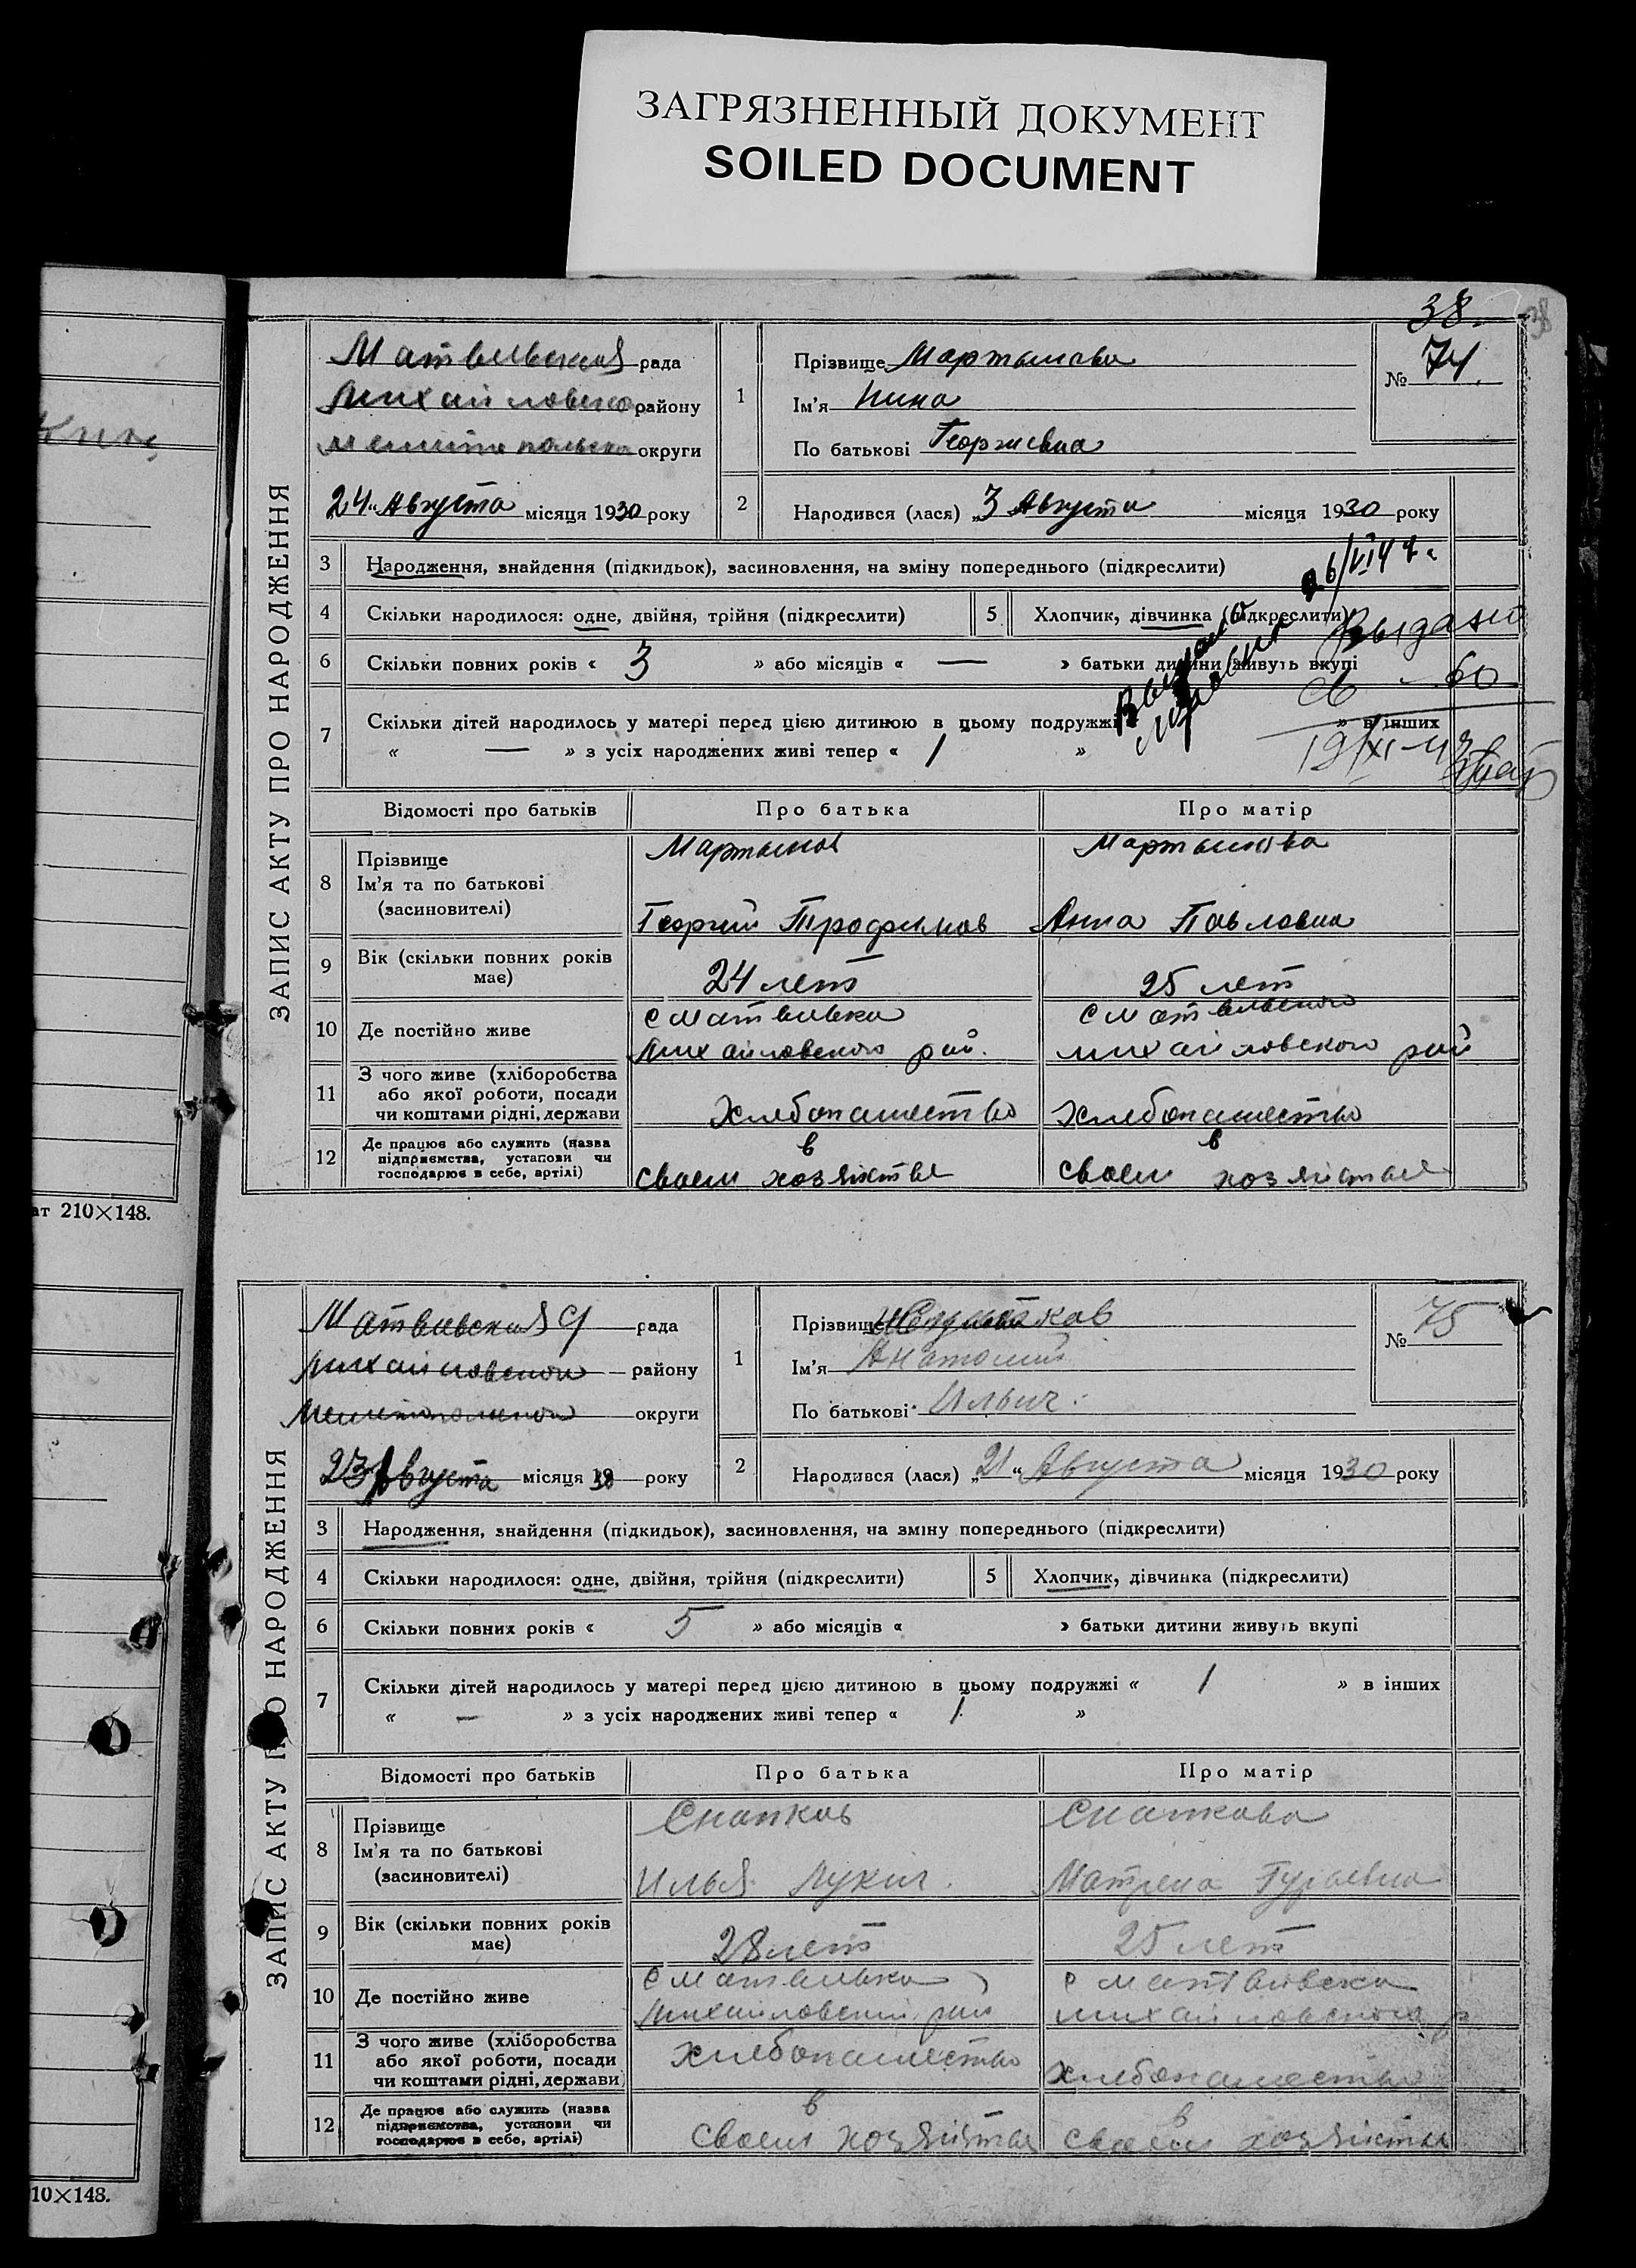 ЗАГРЯЗНЕННЫЙ ДОКУМЕНТ
SOILED DOCUMENT
38.
38
ЗАПИС АКТУ ПРО НАРОДЖЕННЯ
рада
Михайловского району
округи
24 " Августа місяця 1930 року
1
Прізвище Мартынова
Ім'я Нина
По батькові Георгиевна
№ 74.
2
Народився (лася) „3 Августа місяця 1930 року
3 Народження, знайдення (підкидьок), засиновлення, на зміну попереднього (підкреслити)
26/VI 47 г.
4 Скільки народилося: одне, двійня, трійня (підкреслити)
5 Хлопчик, дівчинка (підкреслити)
Выдано
6 Скільки повних років « 3 » або місяців « — » батьки дитини живуть вкупі
7 Скільки дітей народилось у матері перед цією дитиною в цьому подружжі » в інших
« — » з усіх народжених живі тепер « 1 »
Відомості про батьків Про батька Про матір
8 Прізвище
Ім'я та по батькові
(засиновителі)
Мартынов
Георгий Трофимов
Мартынова
Анна Павловна
9 Вік (скільки повних років має)
24 лет
25 лет
10 Де постійно живе
с Матвиевка
Михайловского рай.
с
Михайловского рай
11 З чого живе (хліборобства
або якої роботи, посади
чи коштами рідні, держави
Хлебопашество
Хлебопашество
12 Де працює або служить (назва
підприємства, установи чи
господарює в себе, артілі)
в
своем хозяйстве
в
своем хозяйстве
ат 210×148.
ЗАПИС АКТУ ПРО НАРОДЖЕННЯ
рада
Михайловского району
округи
23 Августа місяця 1930 року
1
Прізвище
Ім'я Анатолий
По батькові Ильич.
№ 75
2
Народився (лася) „21 " Августа місяця 1930 року
3 Народження, знайдення (підкидьок), засиновлення, на зміну попереднього (підкреслити)
4 Скільки народилося: одне, двійня, трійня (підкреслити)
5 Хлопчик, дівчинка (підкреслити)
6 Скільки повних років « 5 » або місяців « » батьки дитини живуть вкупі
7 Скільки дітей народилось у матері перед цією дитиною в цьому подружжі « 1 » в інших
« — » з усіх народжених живі тепер « 1 »
Відомості про батьків Про батька Про матір
8 Прізвище
Ім'я та по батькові
(засиновителі)
Илья Лукич.
Матрена Гурьевна
9 Вік (скільки повних років має)
28 лет
25 лет
10 Де постійно живе
с Матвиевка
Михайловский рай
с
Михайловского р
11 З чого живе (хліборобства
або якої роботи, посади
чи коштами рідні, держави
Хлебопашество
Хлебопашество
12 Де працює або служить (назва
підприємства, установи чи
господарює в себе, артілі)
в
своем хозяйстве
в
своем хозяйстве
10×148.